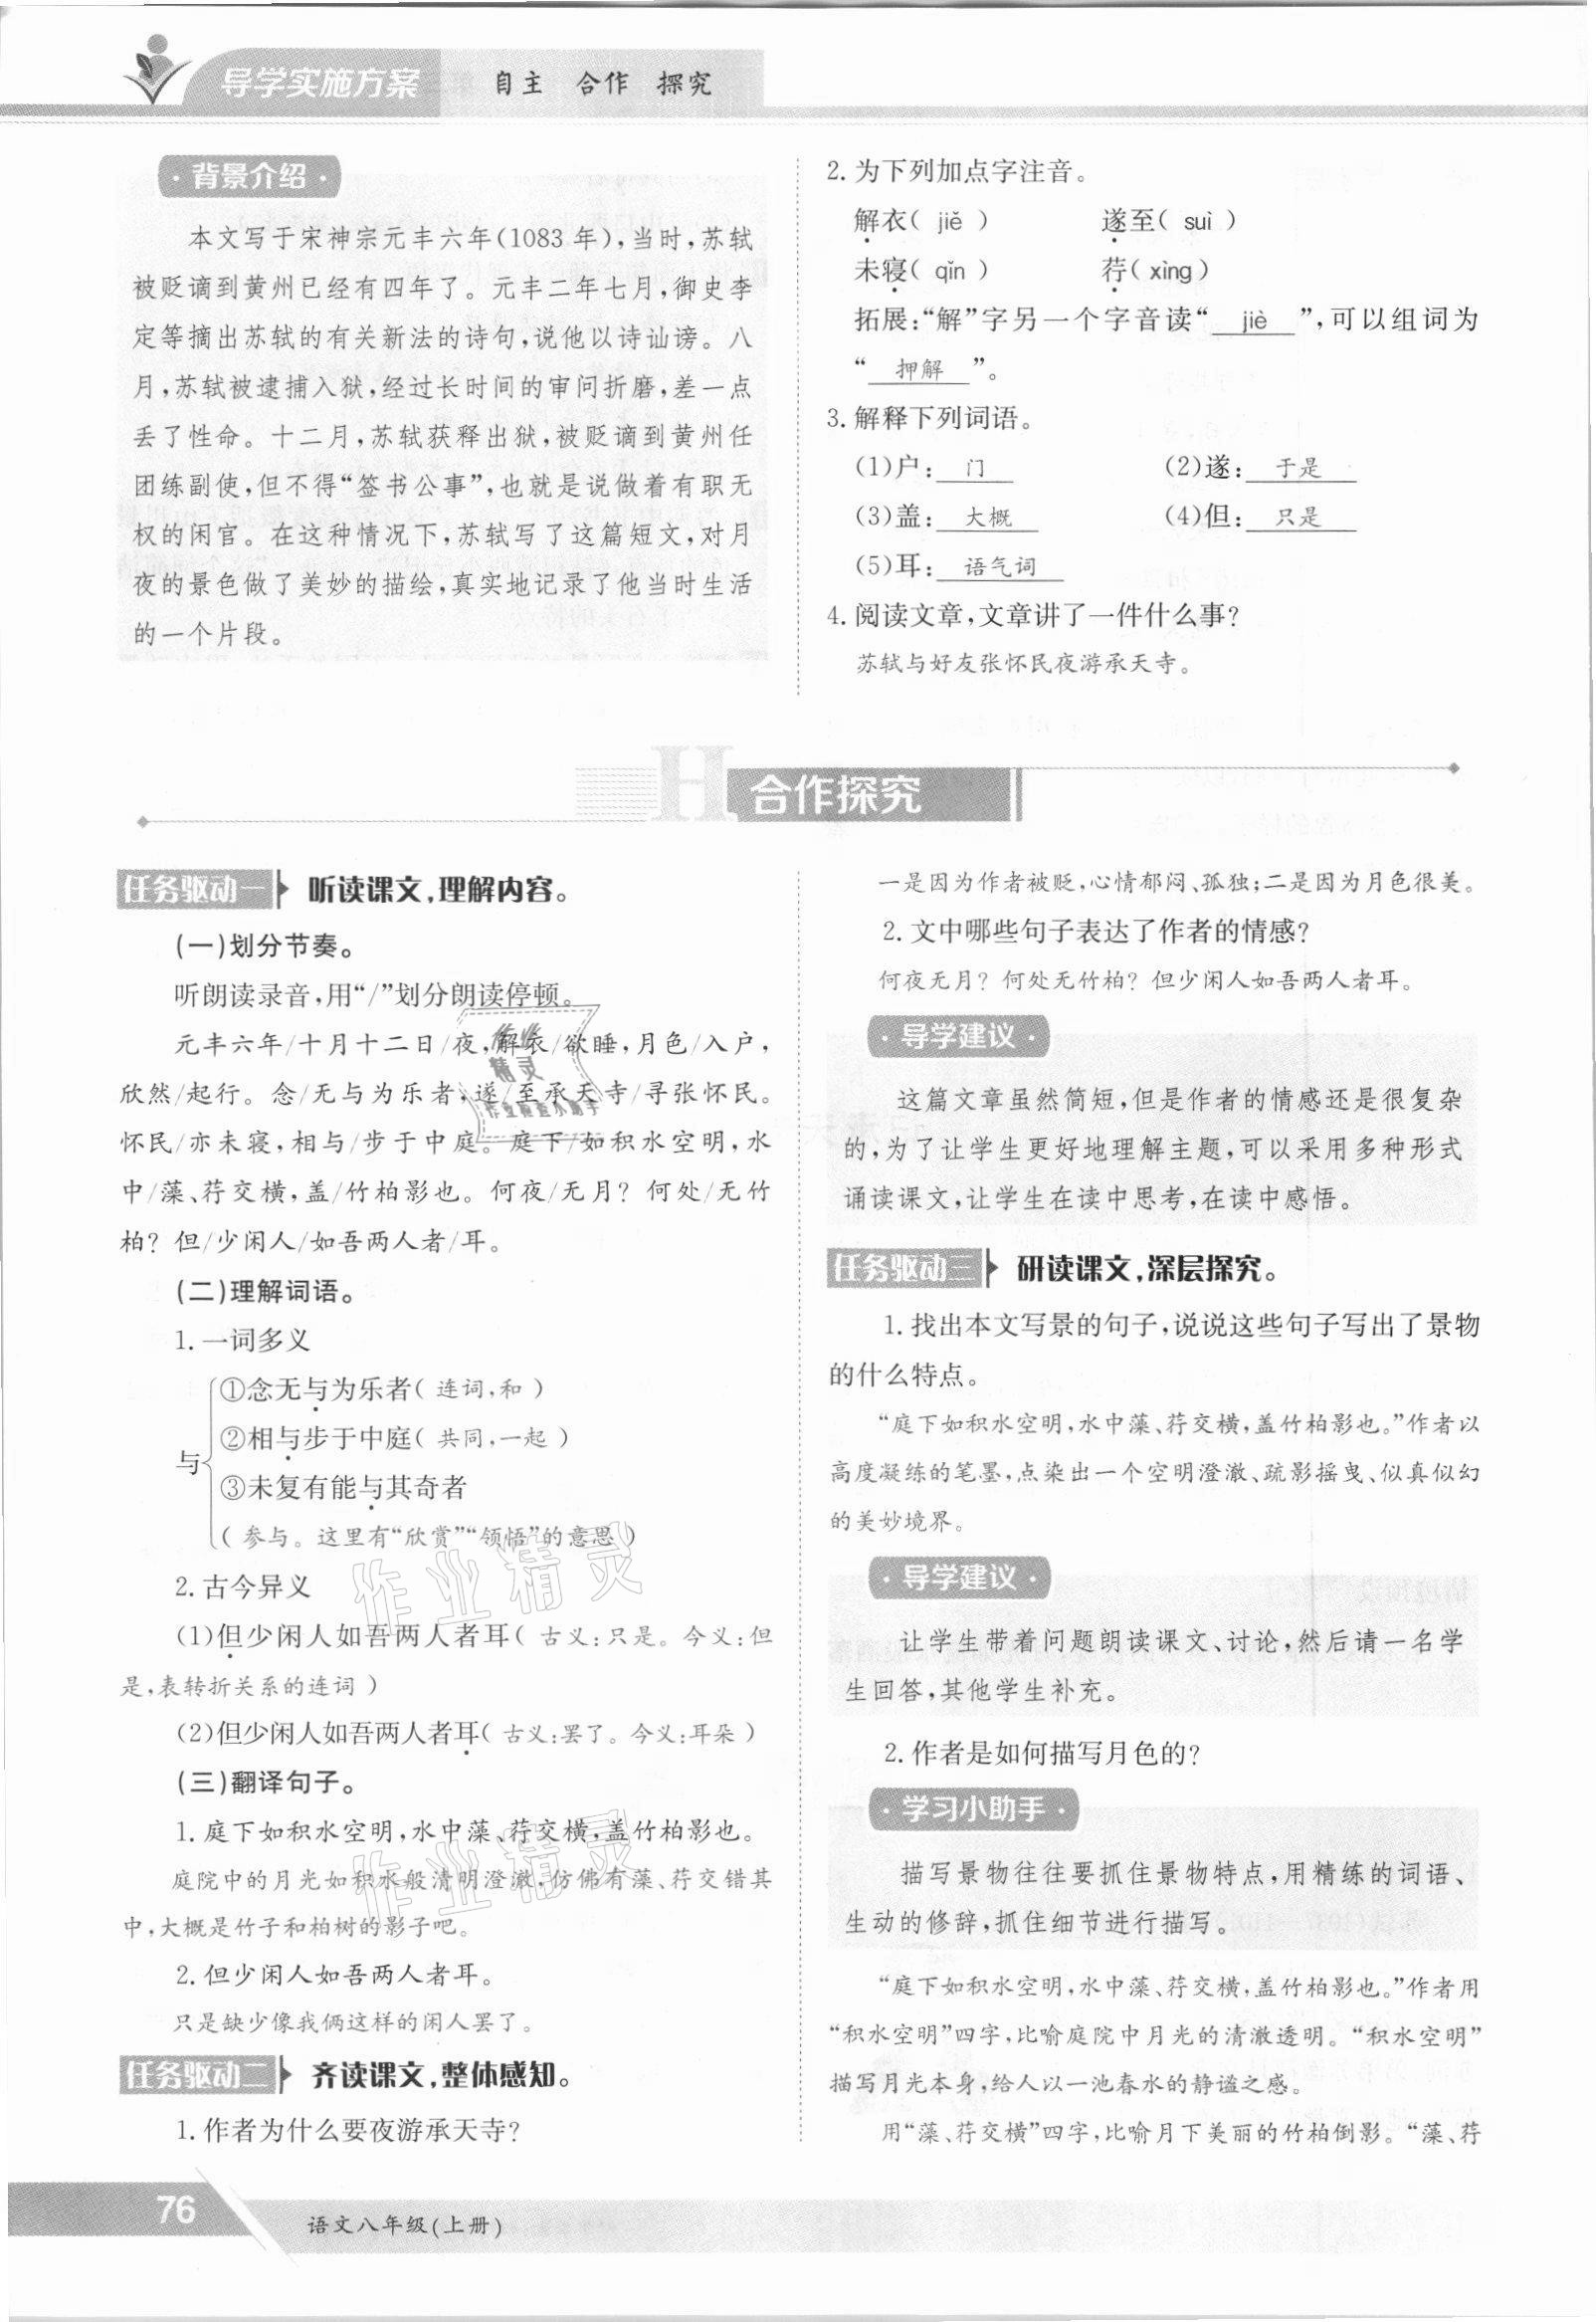 导学实施方案 自主 合作 探究
·背景介绍·
本文写于宋神宗元丰六年(1083年),当时,苏轼
被贬谪到黄州已经有四年了。元丰二年七月,御史李
定等摘出苏轼的有关新法的诗句,说他以诗讪谤。八
月,苏轼被逮捕入狱,经过长时间的审问折磨,差一点
丢了性命。十二月,苏轼获释出狱,被贬谪到黄州任
团练副使,但不得“签书公事”,也就是说做着有职无
权的闲官。在这种情况下,苏轼写了这篇短文,对月
夜的景色做了美妙的描绘,真实地记录了他当时生活
的一个片段。
2. 为下列加点字注音。
解衣( jiě ) 遂至( suì )
未寝( qǐn ) 荇( xìng )
拓展:“解”字另一个字音读“ jiè ”,可以组词为
“ 押解 ”。
3. 解释下列词语。
(1)户: 门 (2)遂: 于是
(3)盖: 大概 (4)但: 只是
(5)耳: 语气词
4. 阅读文章,文章讲了一件什么事?
苏轼与好友张怀民夜游承天寺。
H 合作探究
任务驱动一 听读课文,理解内容。
(一)划分节奏。
听朗读录音,用“/”划分朗读停顿。
元丰六年/十月十二日/夜,解衣/欲睡,月色/入户,
欣然/起行。念/无与为乐者,遂/至承天寺/寻张怀民。
怀民/亦未寝,相与/步于中庭。庭下/如积水空明,水
中/藻、荇交横,盖/竹柏影也。何夜/无月?何处/无竹
柏?但/少闲人/如吾两人者/耳。
(二)理解词语。
1. 一词多义
与
①念无与为乐者( 连词,和 )
②相与步于中庭( 共同,一起 )
③未复有能与其奇者
( 参与。这里有“欣赏”“领悟”的意思 )
2. 古今异义
(1)但少闲人如吾两人者耳( 古义:只是。今义:但
是,表转折关系的连词 )
(2)但少闲人如吾两人者耳( 古义:罢了。今义:耳朵 )
(三)翻译句子。
1. 庭下如积水空明,水中藻、荇交横,盖竹柏影也。
庭院中的月光如积水般清明澄澈,仿佛有藻、荇交错其
中,大概是竹子和柏树的影子吧。
2. 但少闲人如吾两人者耳。
只是缺少像我俩这样的闲人罢了。
任务驱动二 齐读课文,整体感知。
1. 作者为什么要夜游承天寺?
一是因为作者被贬,心情郁闷、孤独;二是因为月色很美。
2. 文中哪些句子表达了作者的情感?
何夜无月?何处无竹柏?但少闲人如吾两人者耳。
·导学建议·
这篇文章虽然简短,但是作者的情感还是很复杂
的,为了让学生更好地理解主题,可以采用多种形式
诵读课文,让学生在读中思考,在读中感悟。
任务驱动三 研读课文,深层探究。
1. 找出本文写景的句子,说说这些句子写出了景物
的什么特点。
“庭下如积水空明,水中藻、荇交横,盖竹柏影也。”作者以
高度凝练的笔墨,点染出一个空明澄澈、疏影摇曳、似真似幻
的美妙境界。
·导学建议·
让学生带着问题朗读课文、讨论,然后请一名学
生回答,其他学生补充。
2. 作者是如何描写月色的?
·学习小助手·
描写景物往往要抓住景物特点,用精练的词语、
生动的修辞,抓住细节进行描写。
“庭下如积水空明,水中藻、荇交横,盖竹柏影也。”作者用
“积水空明”四字,比喻庭院中月光的清澈透明。“积水空明”
描写月光本身,给人以一池春水的静谧之感。
用“藻、荇交横”四字,比喻月下美丽的竹柏倒影。“藻、荇
作业精灵
作业精灵
作业精灵
76 语文八年级(上册)